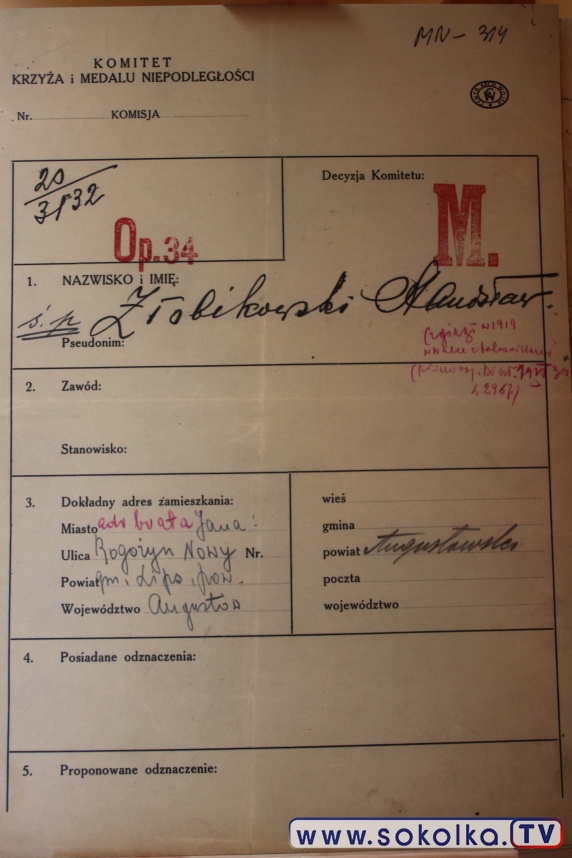 MN - 314
KOMITET
KRZYŻA i MEDALU NIEPODLEGŁOŚCI
Nr. KOMISJA
20
3132
Decyzja Komitetu:
Op.34
M.
1. NAZWISKO i IMIĘ:
ś.p. Złobikowski Stanisław.
Pseudonim:
w 1919
2967)
2. Zawód:
Stanowisko:
3. Dokładny adres zamieszkania:
Miasto adr brata Jana:
Ulica Rogożyn Nowy Nr.
Powiat gm. Lipo, pow.
Województwo Augustów
wieś
gmina
powiat Augustowski
poczta
województwo
4. Posiadane odznaczenia:
5. Proponowane odznaczenie:
www.sokolka.TV